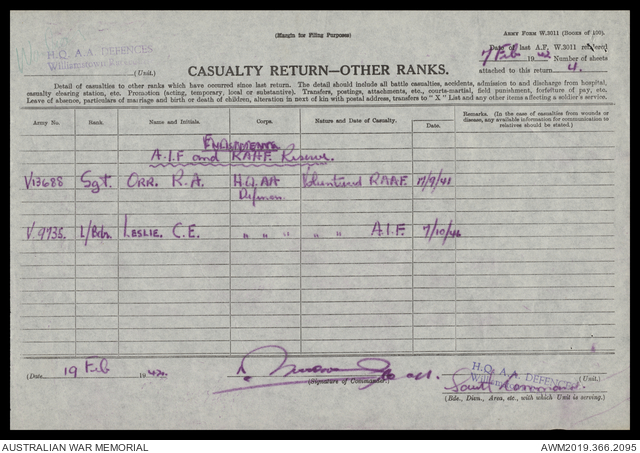 (Margin for Filing Purposes)
ARMY FORM W.3011 (BOOKS OF 100).
H.Q. A.A. DEFENCES
Williamstown
(Unit.)
Date of last A.F. W.3011 rendered
7 Feb 1942. Number of sheets
attached to this return 4.
CASUALTY RETURN—OTHER RANKS.
Detail of casualties to other ranks which have occurred since last return. The detail should include all battle casualties, accidents, admission to and discharge from hospital,
casualty clearing station, etc. Promotion (acting, temporary, local or substantive). Transfers, postings, attachments, etc., courts-martial, field punishment, forfeiture of pay, etc.
Leave of absence, particulars of marriage and birth or death of children, alteration in next of kin with postal address, transfers to "X" List and any other items affecting a soldier's service.
Army No. Rank. Name and Initials. Corps. Nature and Date of Casualty. Date. Remarks. (In the case of casualties from wounds or
disease, any available information for communication to
relatives should be stated.)
ENLISTMENTS
A.I.F and RAAF Reserve.
V13688 Sgt. ORR. R.A. H.Q. AA Volunteered RAAF.
V.9735. L/Bdr. LESLIE. C.E. " " " " " A.I.F.
(Date 19 Feb 1942.
(Signature of Commander.)
H.Q. A.A. DEFENCES
(Unit.)
South Command.
(Bde., Divn., Area, etc., with which Unit is serving.)
AUSTRALIAN WAR MEMORIAL
AWM2019.366.2095